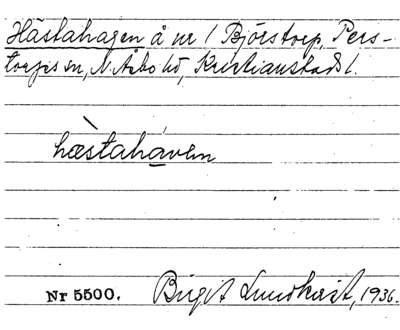 Hästahagen å nr 1 Björstorp, Pers-
torps sn, N. Åsbo hd, Kristianstads l.
hæ̀stahavɛn
Nr 5500. Birgit Lundkvist, 1936.